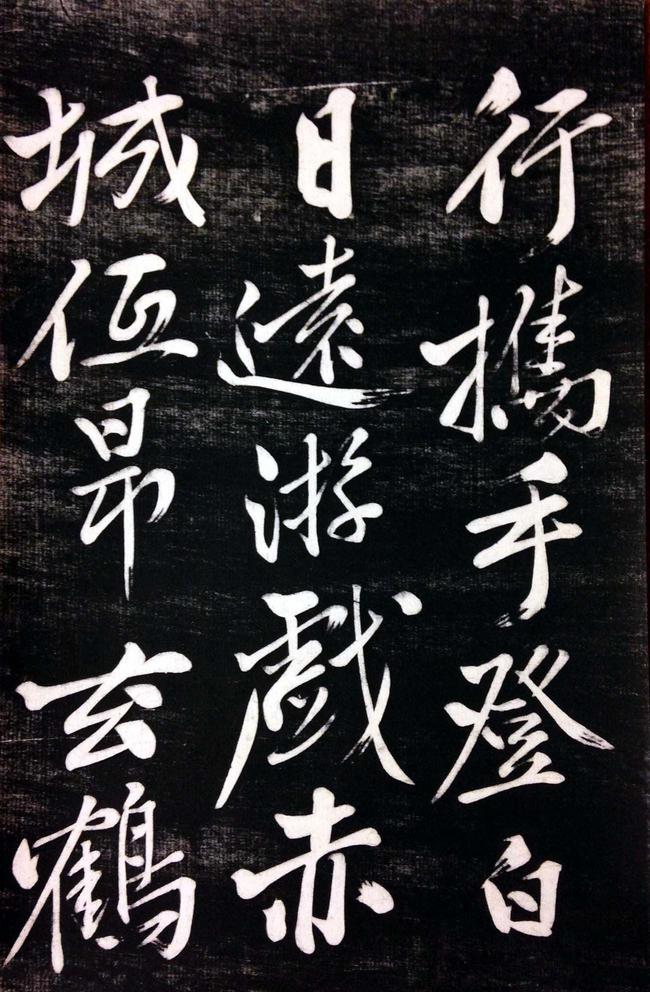 行攜手登白
日遠游戲赤
城低昂玄鶴